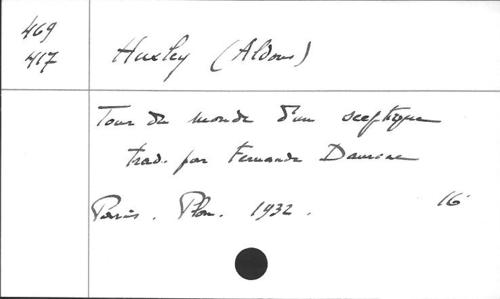 469
417
Huxley (Aldous)
Tour du monde d'un sceptique
trad. par Fernande Dauriac
Paris. Plon. 1932. 16